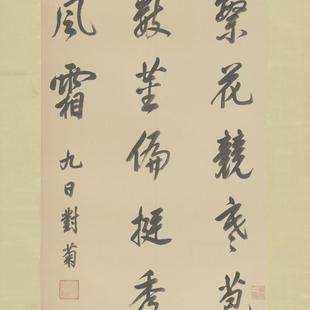 繁花競寒
數莖偏挺秀
風霜
九日對菊